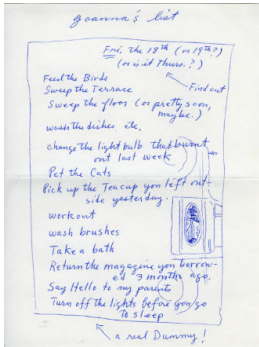 Joanna's list
Fri. the 18th (or 19th?)
(or is it Thurs.?)
Find out
Feed the Birds
Sweep the Terrace
Sweep the floor (or pretty soon,
maybe.)
wash the dishes etc.
change the light bulb that burnt
out last week
Pet the Cats
Pick up the Teacup you left out-
side yesterday.
workout
wash brushes
Take a bath
Return the magazine you borrow-
ed 3 months ago.
Say Hello to my parents
Turn off the lights before you go
to sleep
a real Dummy!